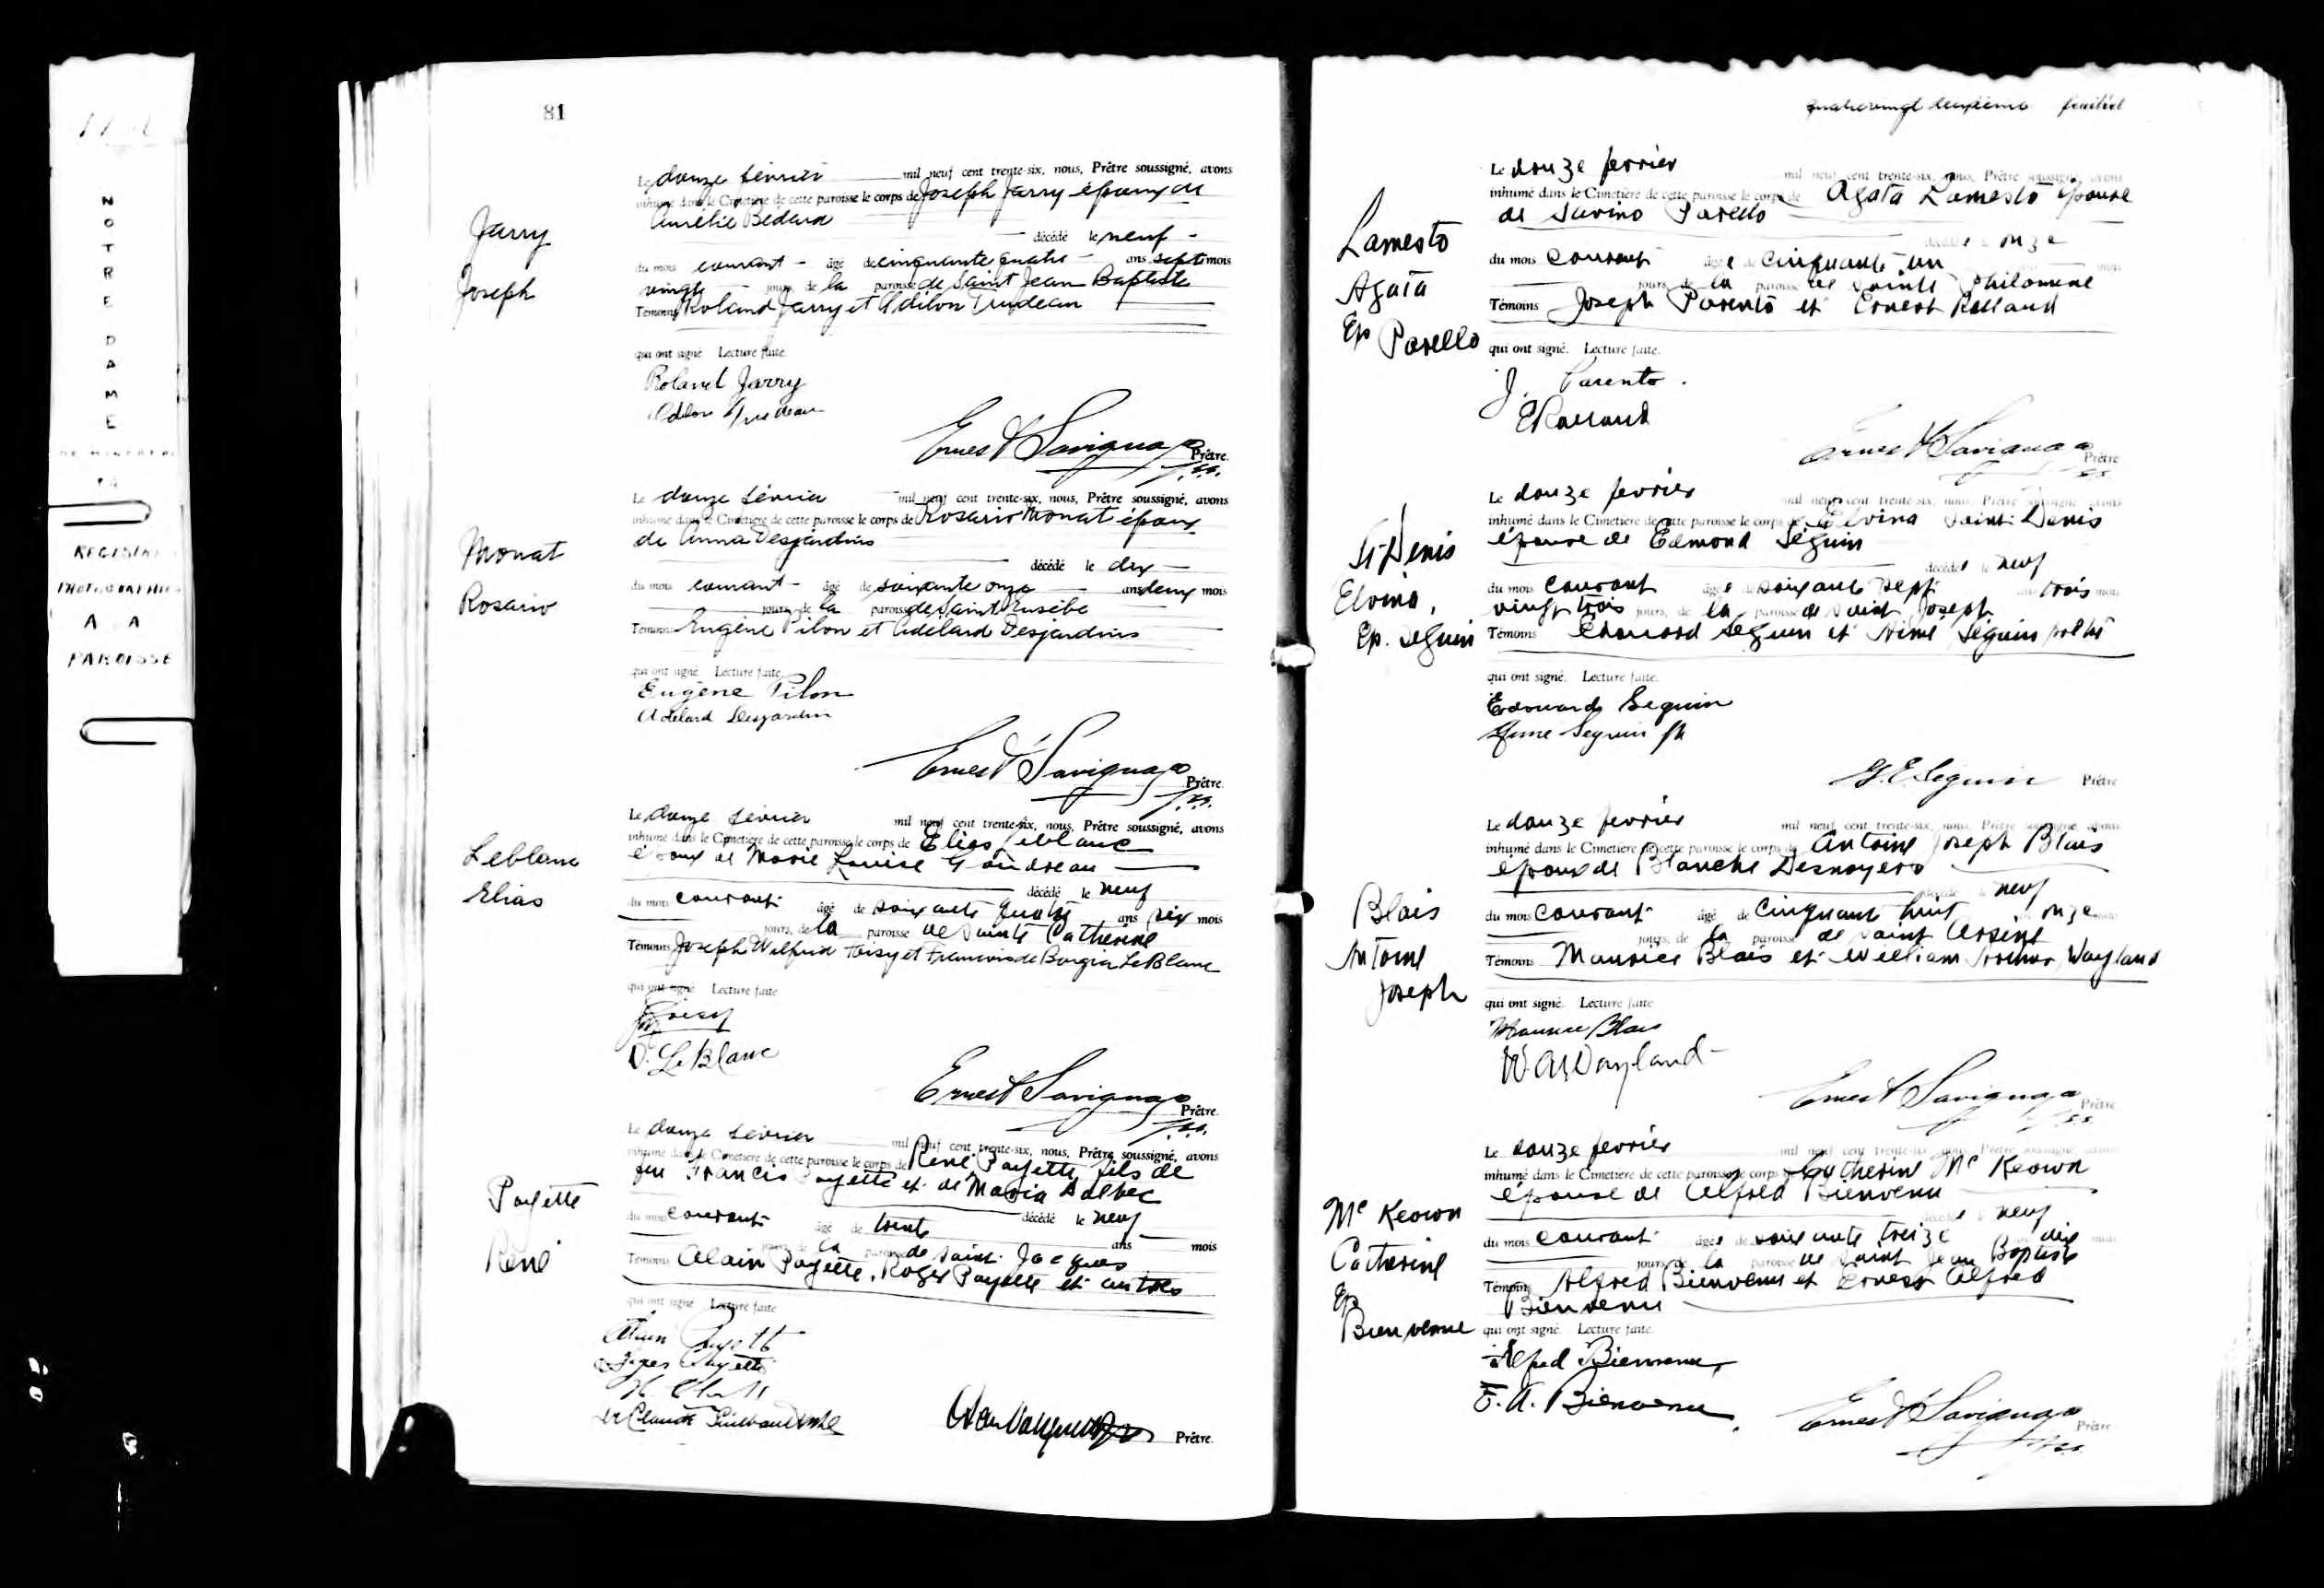 NOTRE DAME
REGISTRE
PHOTOGRAPHIE
A A
PAROISSE
81
Le douze février mil neuf cent trente-six, nous, Prêtre soussigné, avons
inhumé dans le Cimetière de cette paroisse le corps de Joseph Jarry époux de
Aurélie Bedard
décédé le neuf
Jarry
du mois courant âgé de cinquante quatre ans sept mois
Joseph
vingt jours, de la paroisse de Saint Jean Baptiste
Témoins Roland Jarry et Odilon Trudeau
qui ont signé Lecture faite.
Roland Jarry
Odilon Trudeau
Ernest Savignac Prêtre
Le douze février mil neuf cent trente-six, nous, Prêtre soussigné, avons
inhumé dans le Cimetière de cette paroisse le corps de Rosario Monat époux
de Anna Desjardins
Monat
décédé le dix
du mois courant âgé de soixante onze ans deux mois
Rosario
jours, de la paroisse de Saint Eusèbe
Témoins Eugène Pilon et Adélard Desjardins
qui ont signé Lecture faite.
Eugène Pilon
Adelard Desjardins
Ernest Savignac Prêtre.
Le douze février mil neuf cent trente-six, nous, Prêtre soussigné, avons
inhumé dans le Cimetière de cette paroisse le corps de Elias Leblanc
époux de Marie Louise Goudreau
Leblanc
décédé le neuf
Elias
du mois courant âgé de soixante quatre ans six mois
jours, de la paroisse de Sainte Catherine
Témoins Joseph Wilfrid Foisy et Francois de Borgia LeBlanc
qui ont signé Lecture faite
Foisy
LeBlanc
Ernest Savignac Prêtre.
Le douze février mil neuf cent trente-six, nous, Prêtre soussigné, avons
inhumé dans le Cimetière de cette paroisse le corps de René Payette, fils de
feu Francis Payette et de Maria Dalbec
Payette
décédé le neuf
du mois courant âgé de trente ans mois
René
jours, de la paroisse de Saint Jacques
Témoins Alain Payette, Roger Payette et autres
qui ont signé Lecture faite
Alain Payette
Roger Payette
Prêtre.
quatrevingt deuxième feuillet
Le douze fevrier mil neuf cent trente-six, nous, Prêtre soussigné, avons
inhumé dans le Cimetière de cette paroisse le corps de Agata Lamesto épouse
de Savino Parello
Lamesto
décédée le onze
du mois courant âgée de cinquante un
Agata
jours, de la paroisse de Sainte Philomène
Témoins Joseph Parento et Ernest Rolland
Ep Parello
qui ont signé. Lecture faite.
J. Parento.
E Rolland
Ernest Savignac Prêtre
Le douze fevrier mil neuf cent trente-six, nous, Prêtre soussigné, avons
inhumé dans le Cimetière de cette paroisse le corps de Elvina Saint-Denis
épouse de Edmond Séguin
St Denis
décédée le neuf
du mois courant âgée de soixante sept ans trois mois
Elvina,
vingt trois jours, de la paroisse de Saint Joseph
Ep. Seguin
Témoins Edouard Seguin et Aimé Séguin ptre
qui ont signé. Lecture faite.
Edouard Seguin
Aimé Seguin ptr
G. E. Seguin Prêtre
Le douze fevrier mil neuf cent trente-six, nous, Prêtre soussigné, avons
inhumé dans le Cimetière de cette paroisse le corps de Antoine Joseph Blais
époux de Blanche Desnoyers
décédé le neuf
Blais
du mois courant âgé de cinquante huit onze
Antoine
jours, de la paroisse de Saint Arsène
Témoins Maurice Blais et William Arthur Wayland
Joseph
qui ont signé. Lecture faite
Maurice Blais
W. A. Wayland
Ernest Savignac Prêtre
Le douze fevrier mil neuf cent trente-six, nous, Prêtre soussigné, avons
inhumé dans le Cimetière de cette paroisse le corps de Catherine Mc Keown
épouse de Alfred Bienvenu
Mc Keown
décédée le neuf
du mois courant âgée de soixante treize dix mois
Catherine
jours, de la paroisse de Saint Jean Baptiste
Témoins Alfred Bienvenu et Ernest Alfred
Ep
Bienvenu
Bienvenue
qui ont signé. Lecture faite.
Alfred Bienvenu
E. A. Bienvenu
Ernest Savignac Prêtre